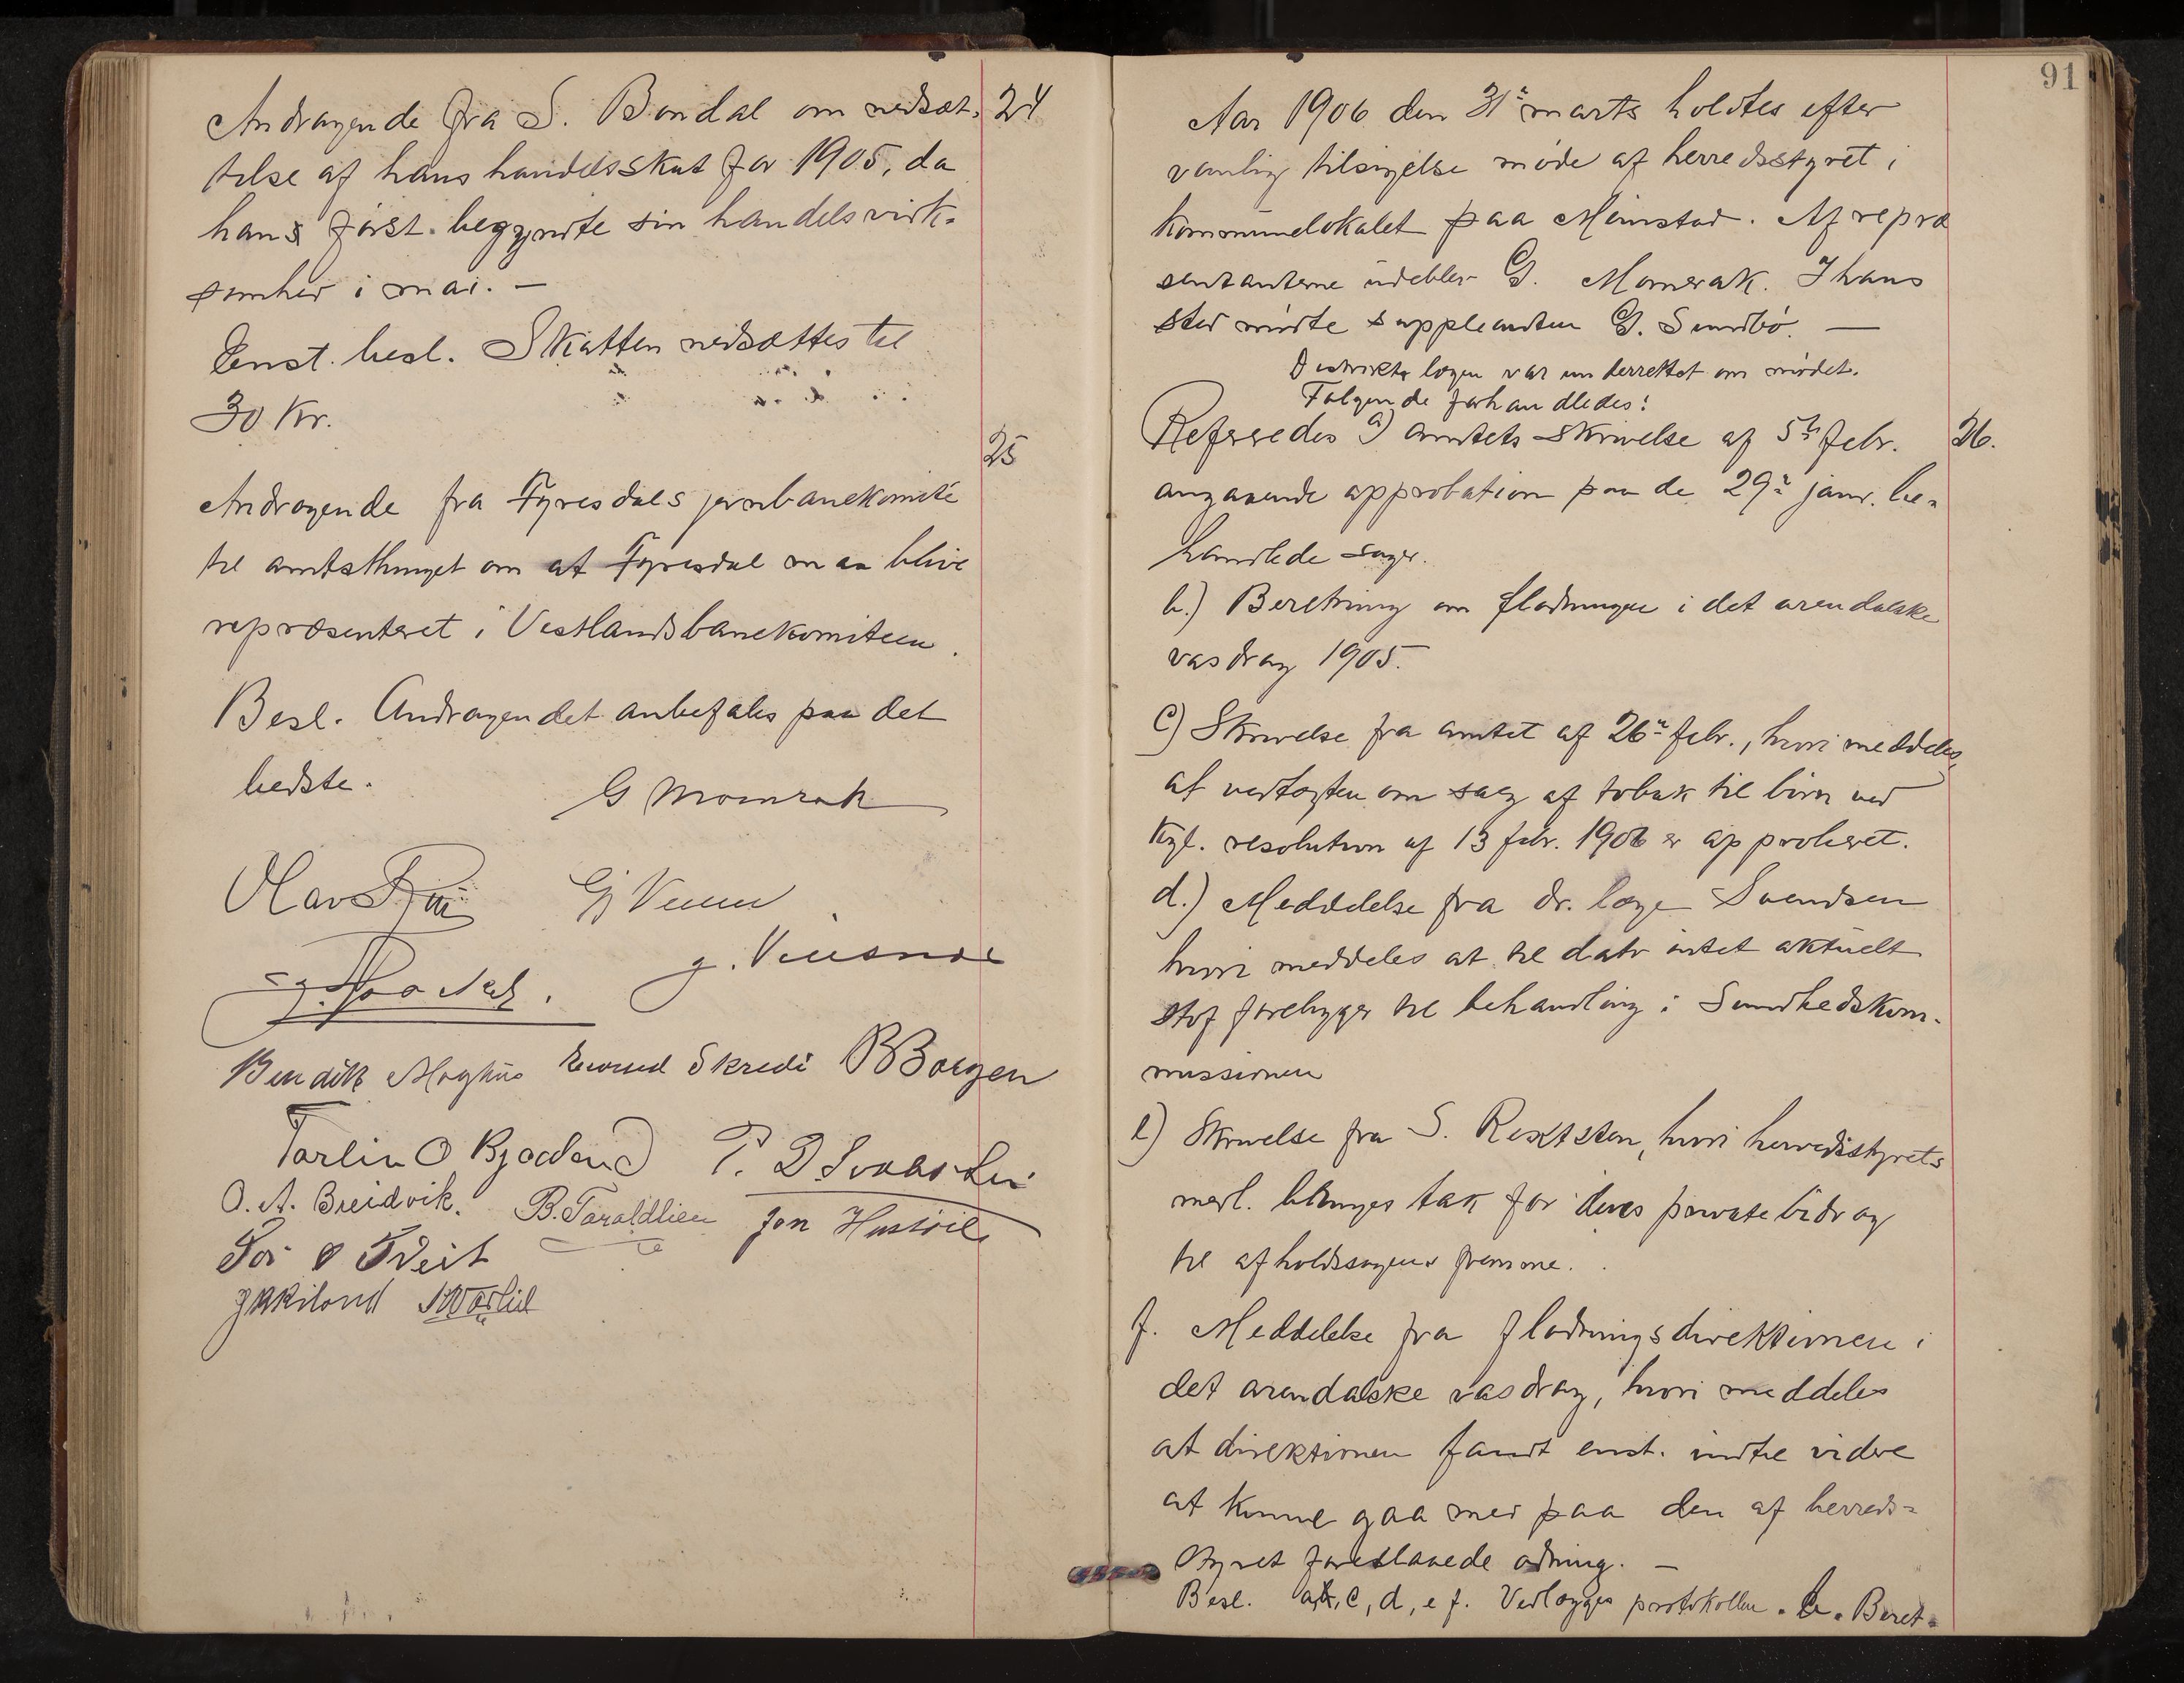 Andragende fra S. Bondal om nedsæt- 24
telse af hans handelsskat for 1905, da
hans først begyndte sin handelsvirk-
somhed i mai. —
Enst. besl. Skatten nedsættes til
30 Kr.
25
Andragende fra Fyresdals jernbanekomité
til amtsthinget om at Fyresdal maa blive
repræsenteret i Vestlandsbanekomiteen.
Besl. Andragendet anbefales paa det
bedste.
G Momrak
Olav
Bendik Moghus Skredi
Tarlin O Bjaaland
O. A. Breidvik. B. Taraldlien Jon
Tveit
91
Aar 1906 den 31te marts holdtes efter
vanlig tilsigelse møde af herredsstyret i
kommunelokalet paa Meimstad. Af repræ
sentanterne udeblev G. Momrak. I hans
sted mødte suppleanten G. Sundbø. —
Distriktslægen var underrettet om mødet.
Følgende forhandledes:
Refereredes a) amtets skrivelse af 5te febr. 26.
angaaende approbation paa de 29de janr. be-
handlede sager.
b.) Beretning om flødningen i det arendalske
vasdrag 1905.
c) Skrivelse fra amtet af 26de febr., hvori meddeles
at vedtægten om salg af tobak til børn ved
kgl. resolution af 13 febr. 1906 er approberet.
d.) Meddelelse fra dr. læge Svendsen
hvori meddeles at til dato intet aktuelt
stof foreligger til behandling i Sundhedskom-
missionen
e) Skrivelse fra S. hvori herredsstyrets
medl. bringes tak for deres private bidrag
til afholdssagens fremme.
f. Meddelelse fra flødningsdirektionen i
det arendalske vasdrag, hvori meddeles
at direktionen fandt enst. indtil videre
at kunne gaa med paa den af herreds-
styret foreslaaede ordning. —
Besl. a, c, d, e f. Vedlægges protokollen. b. Beret-